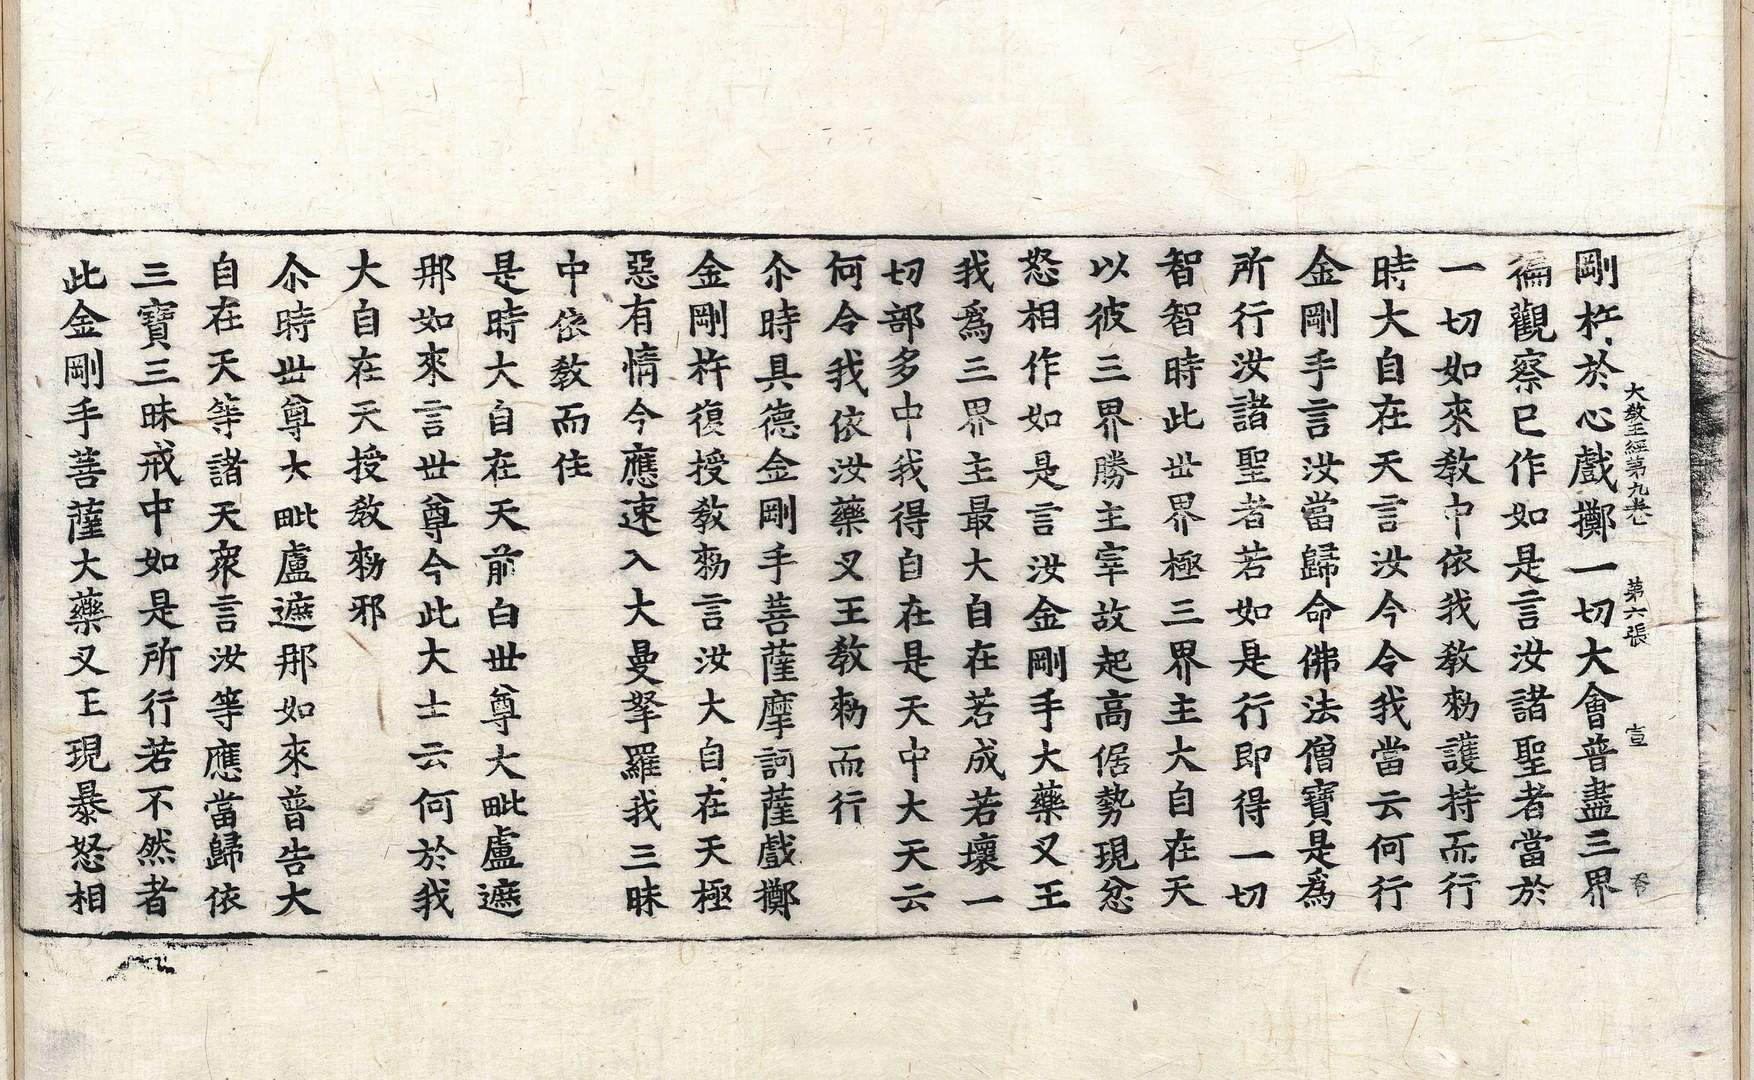 大敎王經第九卷 第六張 宣
剛杵於心戲擲一切大會普盡三界
徧觀察已作如是言汝諸聖者當於
一切如來敎中依我敎勑護持而行
時大自在天言汝今令我當云何行
金剛手言汝當歸命佛法僧寶是爲
所行汝諸聖者若如是行即得一切
智智時此世界極三界主大自在天
以彼三界勝主宰故起高倨勢現忿
怒相作如是言汝金剛手大藥叉王
我爲三界主最大自在若成若壞一
切部多中我得自在是天中大天云
何令我依汝藥叉王敎勑而行
尒時具德金剛手菩薩摩訶薩戲擲
金剛杵復授敎勑言汝大自在天極
惡有情今應速入大曼拏羅我三昧
中依敎而住
是時大自在天前白世尊大毗盧遮
那如來言世尊今此大士云何於我
大自在天授敎勑邪
尒時世尊大毗盧遮那如來普告大
自在天等諸天衆言汝等應當歸依
三寶三昧戒中如是所行若不然者
此金剛手菩薩大藥叉王現暴怒相